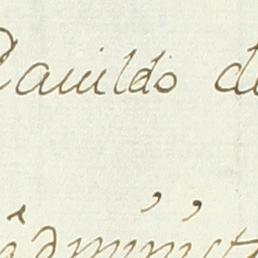 Ranildo d
administ